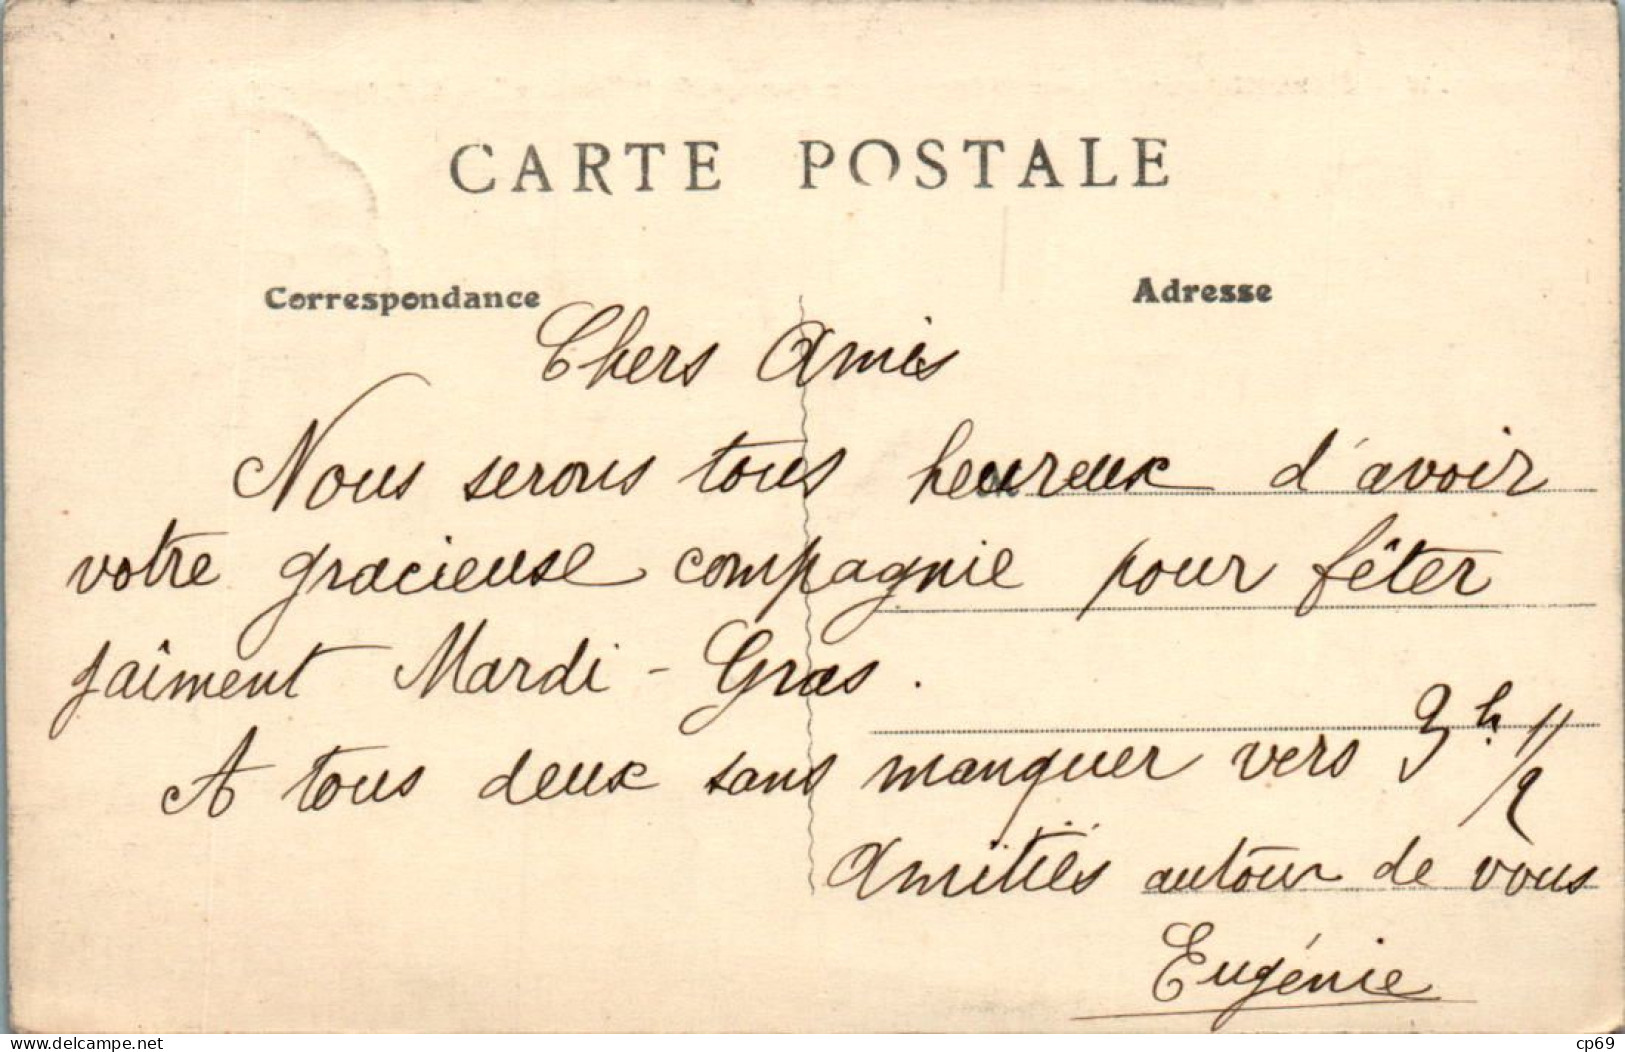 CARTE POSTALE
Correspondance
Adresse
Chers Amis
Nous serons tous heureux d'avoir
votre gracieuse compagnie pour fêter
gaîment Mardi-Gras.
A tous deux sans manquer vers 3h 1/2
Amitiés autour de vous
Eugénie
delcampe.net
cp69